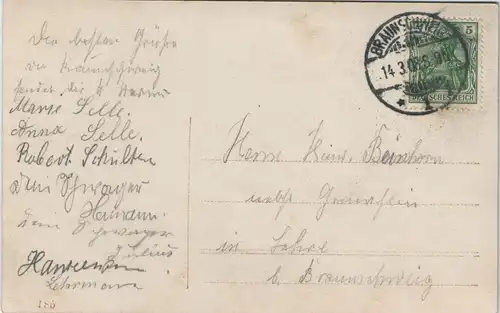 Die besten Grüße
in Braunschweig
sendet die
Marie Selle.
Anna Selle.
Robert Schulten
Dein Schwager
Hermann
Dein Schwager
Julius
Lehrmann
186
BRAUNSCHWEIG
14.3.
5
DEUTSCHES REICH
Herrn Heinr. Beinhorn
nebst
in Lehre
b. Braunschweig